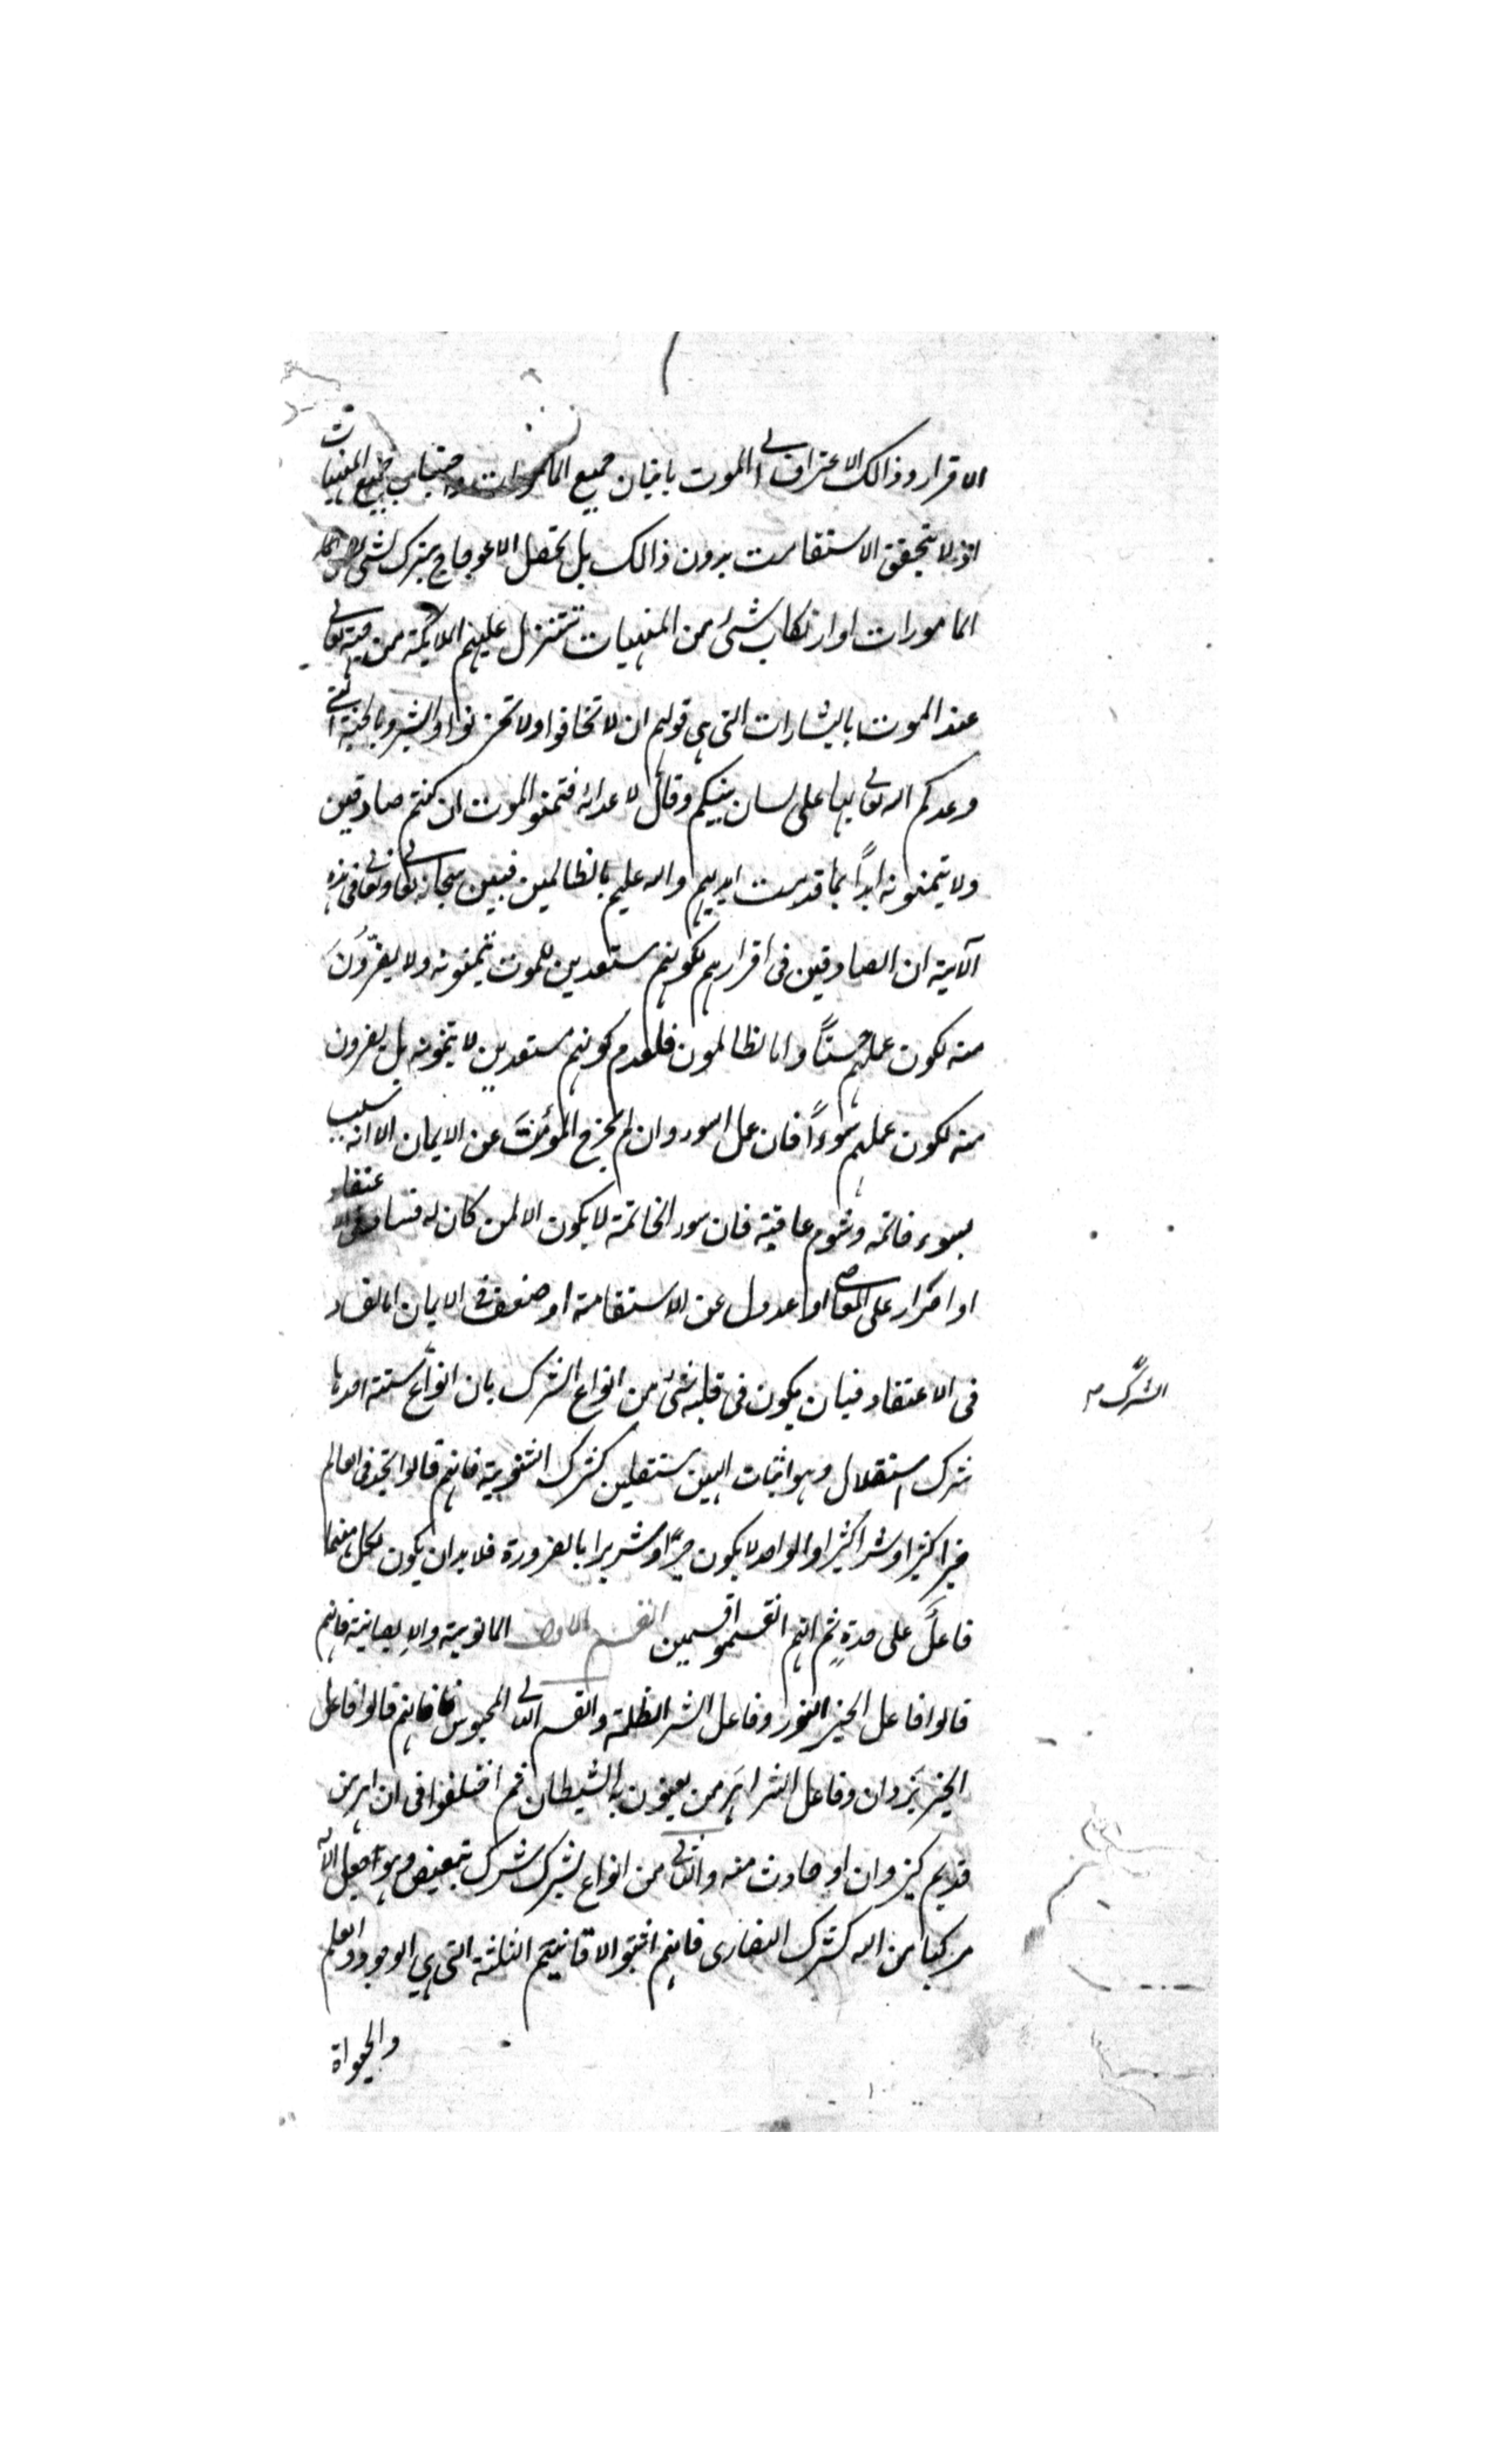 الاقرار وذالك الاعتراف الى الموت باتيان جميع المامورات واجتناب جميع المنهيات
اذ لا يتحقق الاستقامت بدون ذالك بل تحصل الاعوجاج بترك شئ من
المامورات او ارتكاب شئ من المنهيات تتنزل عليهم الملائكة من جهته تعالى
عند الموت بالبشارات التى هى قولهم ان لا تخافوا ولا تحزنوا وابشروا بالجنة التى
وعدكم الله تعالى بها على لسان نبيكم وقال لاعدائه فتمنوا الموت ان كنتم صادقين
ولا يتمنونه ابدًا بما قدمت ايديهم والله عليم بالظالمين فبين سبحانه تعالى فى هذه
الآية ان الصادقين فى اقرارهم لكونهم مستعدين للموت يتمنونه ولا يفرّونَ
منه لكون عملهم حسنًا واما الظالمون فلعدم كونهم مستعدين لا يتمنونه بل يفرون
منه لكون عملهم سوءًا فان عمل السوء وان لم يخرج المؤمنَ عن الايمان الا انه سبب
بسوء خاتمه وشوم عاقبته فان سوء الخاتمة لا يكون الا لمن كان له فساد فى الاعتقاد
او اصرار على المعاصى او عدول عن الاستقامة او ضعف فى الايمان اما الفساد
فى الاعتقاد فبان يكون فى قلبه شئ من انواع الشرك بان انواع ستة احدها
الشرك
شرك استقلال وهو اثبات الهين مستقلين كشرك الثنوية فانهم قالوا نجد فى العالم
خيرا كثيرا وشرا كثيرا والواحد لا يكون خيرًا وشريرا بالضرورة فلا بد ان يكون لكل منهما
فاعلً على حدةٍ ثم انهم انقسموا قسمين القسم الاول المانوية والديصانية فانهم
قالوا فاعل الخير النور وفاعل الشر الظلمة والقسم الثانى المجوس فانهم قالوا فاعل
الخير يَزدان وفاعل الشر اهَرمن يعنون به الشيطان ثم اختلفوا فى ان اهرمن
قديم كيزدان او حادث منه والثانى من انواع الشرك شرك تبعيض وهو جعل الاله
مركبا من اله كشرك النصارى فانهم اثبتوا الاقانيم الثلثة التى هى الوجود والعلم
والحيواة